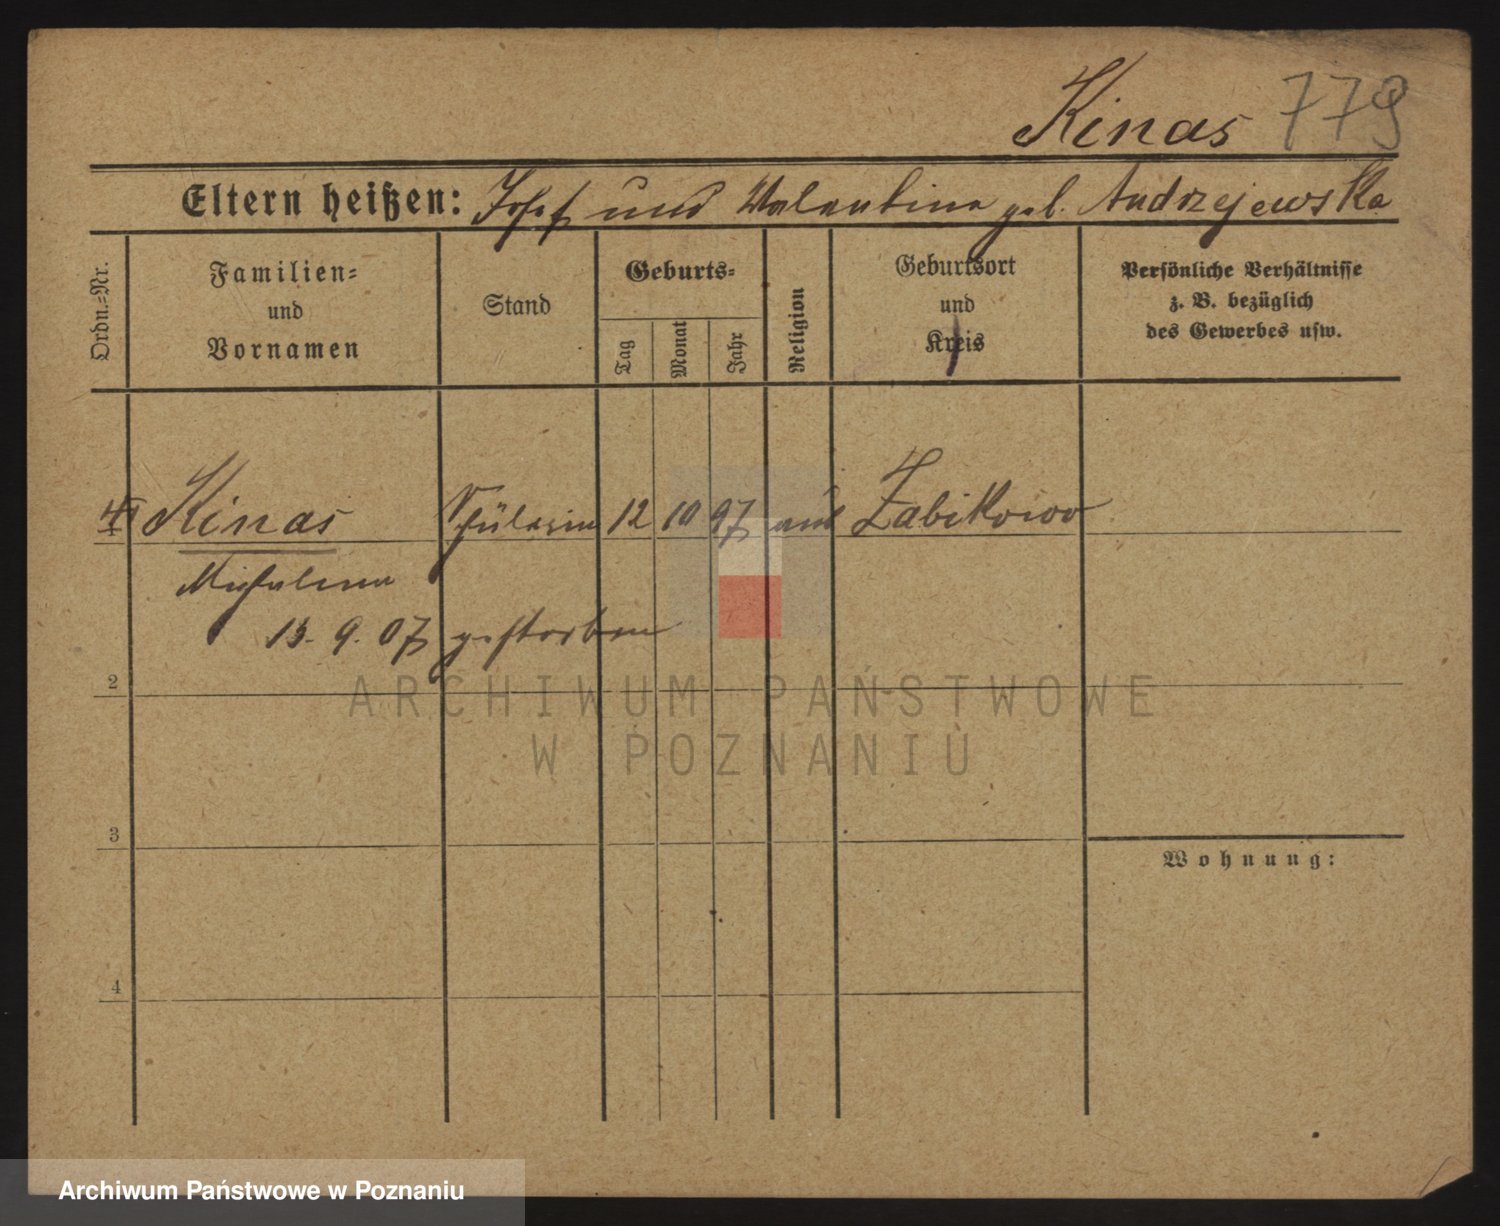 Kinas 779
Eltern heißen: Josef und Valentina geb. Andrzejewska
Ordn.-Nr.
Familien-
und
Vornamen
Stand
Geburts-
Tag
Monat
Jahr
Religion
Geburtsort
und
Kreis
Persönliche Verhältnisse
z. B. bezüglich
des Gewerbes usw.
Kinas Schülerin 12 10 97 aus Zabikowo
Michalina
13. 9. 07 gestorben
2
3
4
Wohnung:
ARCHIWUM PAŃSTWOWE
W POZNANIU
Archiwum Państwowe w Poznaniu